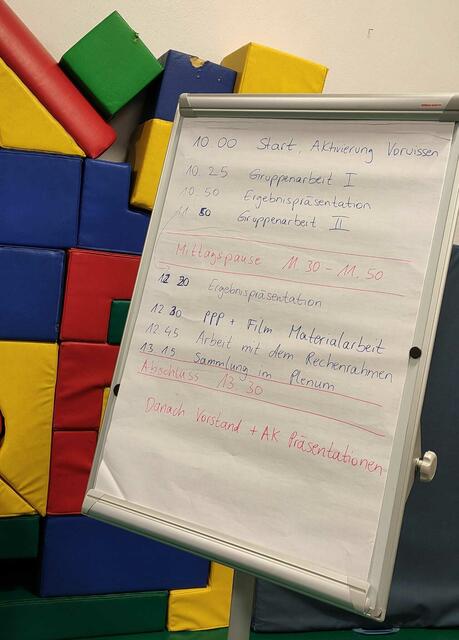 10.00 Start, Aktivierung Vorwissen
10.25 Gruppenarbeit I
10.50 Ergebnispräsentation
Gruppenarbeit II
Mittagspause 11.30 - 11.50
12 20 Ergebnispräsentation
12 30 PPP + Film Materialarbeit
12.45 Arbeit mit dem Rechenrahmen
13.15 Sammlung im Plenum
Abschluss 13 30
Danach Vorstand + AK Präsentationen